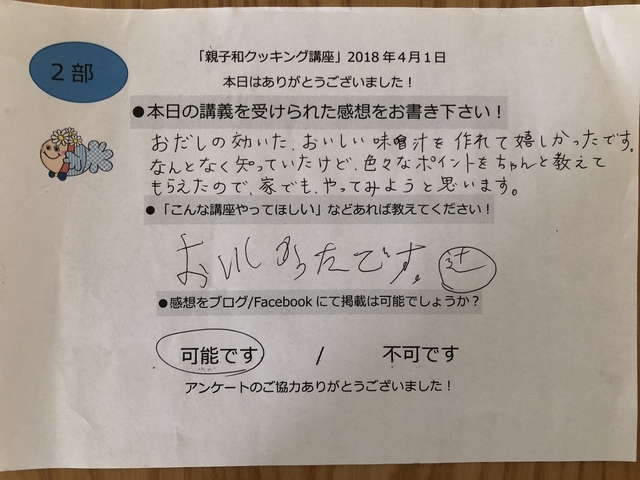 2部
「親子和クッキング講座」2018年4月1日
本日はありがとうございました！
●本日の講義を受けられた感想をお書き下さい！
おだしの効いた、おいしい味噌汁を作れて嬉しかったです。
なんとなく知っていたけど、色々なポイントをちゃんと教えて
もらえたので、家でも、やってみようと思います。
●「こんな講座やってほしい」などあれば教えてください！
おいしかったです。辻
●感想をブログ/Facebookにて掲載は可能でしょうか？
可能です / 不可です
アンケートのご協力ありがとうございました！